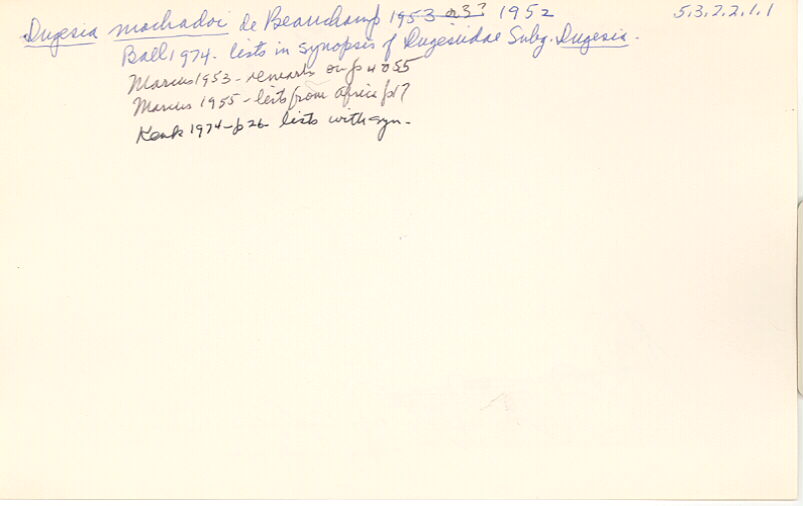 Dugesia machadoi de Beauchamp 1953 a3? 1952 5.3.2.2.1.1
Ball 1974. lists in synopsis of Dugesiidae Subg. Dugesia.
Marcus 1953 - remarks on p 55
Marcus 1955 - lists from Africa p17
Kenk 1974 - p 26 lists with syn.